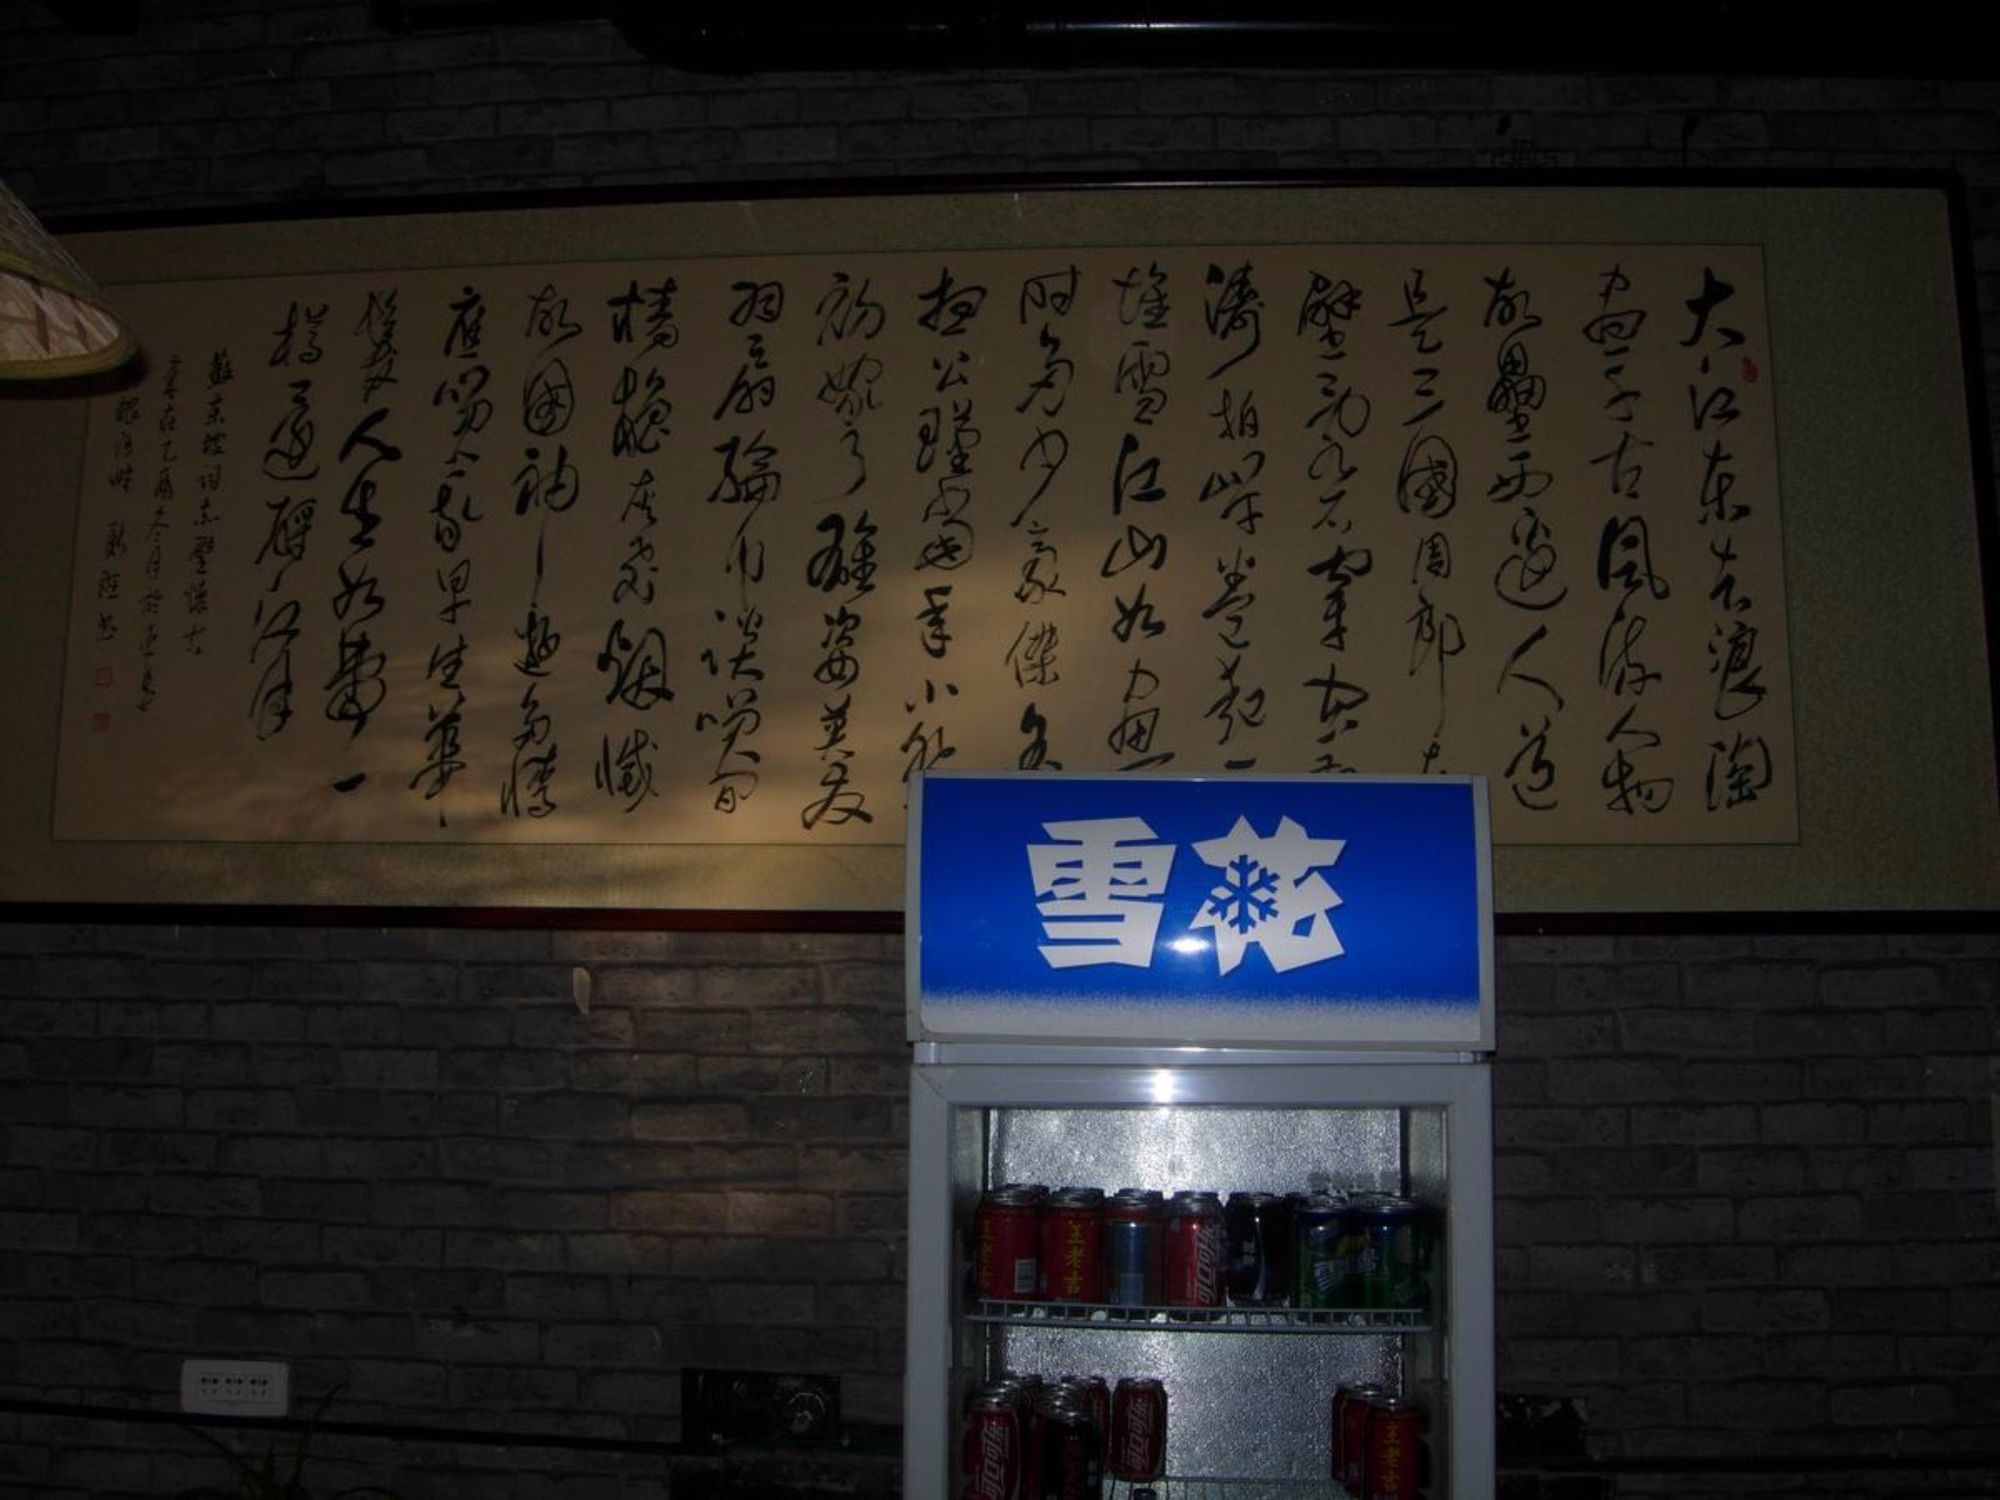 大江东去浪淘
尽千古风流人物
故垒西边人道
是三国周郎
壁
涛拍岸卷起一
堆雪江山如画一
时多少豪杰
想公瑾当年小
初嫁了雄姿英发
羽扇纶巾谈笑间
樯橹灰飞烟灭
故国神游多情
应笑我早生华
发人生如梦一
樽还酹江月
苏东坡词赤壁怀古
雪花
王老吉
王老吉
可口可乐
雪碧
可口可乐
可口可乐
王老吉